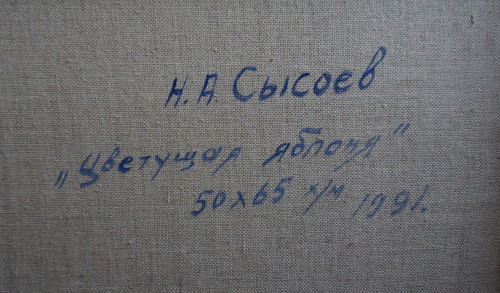 Н.А. Сысоев
„Цветущая яблоня"
50х65 х/м 1991.